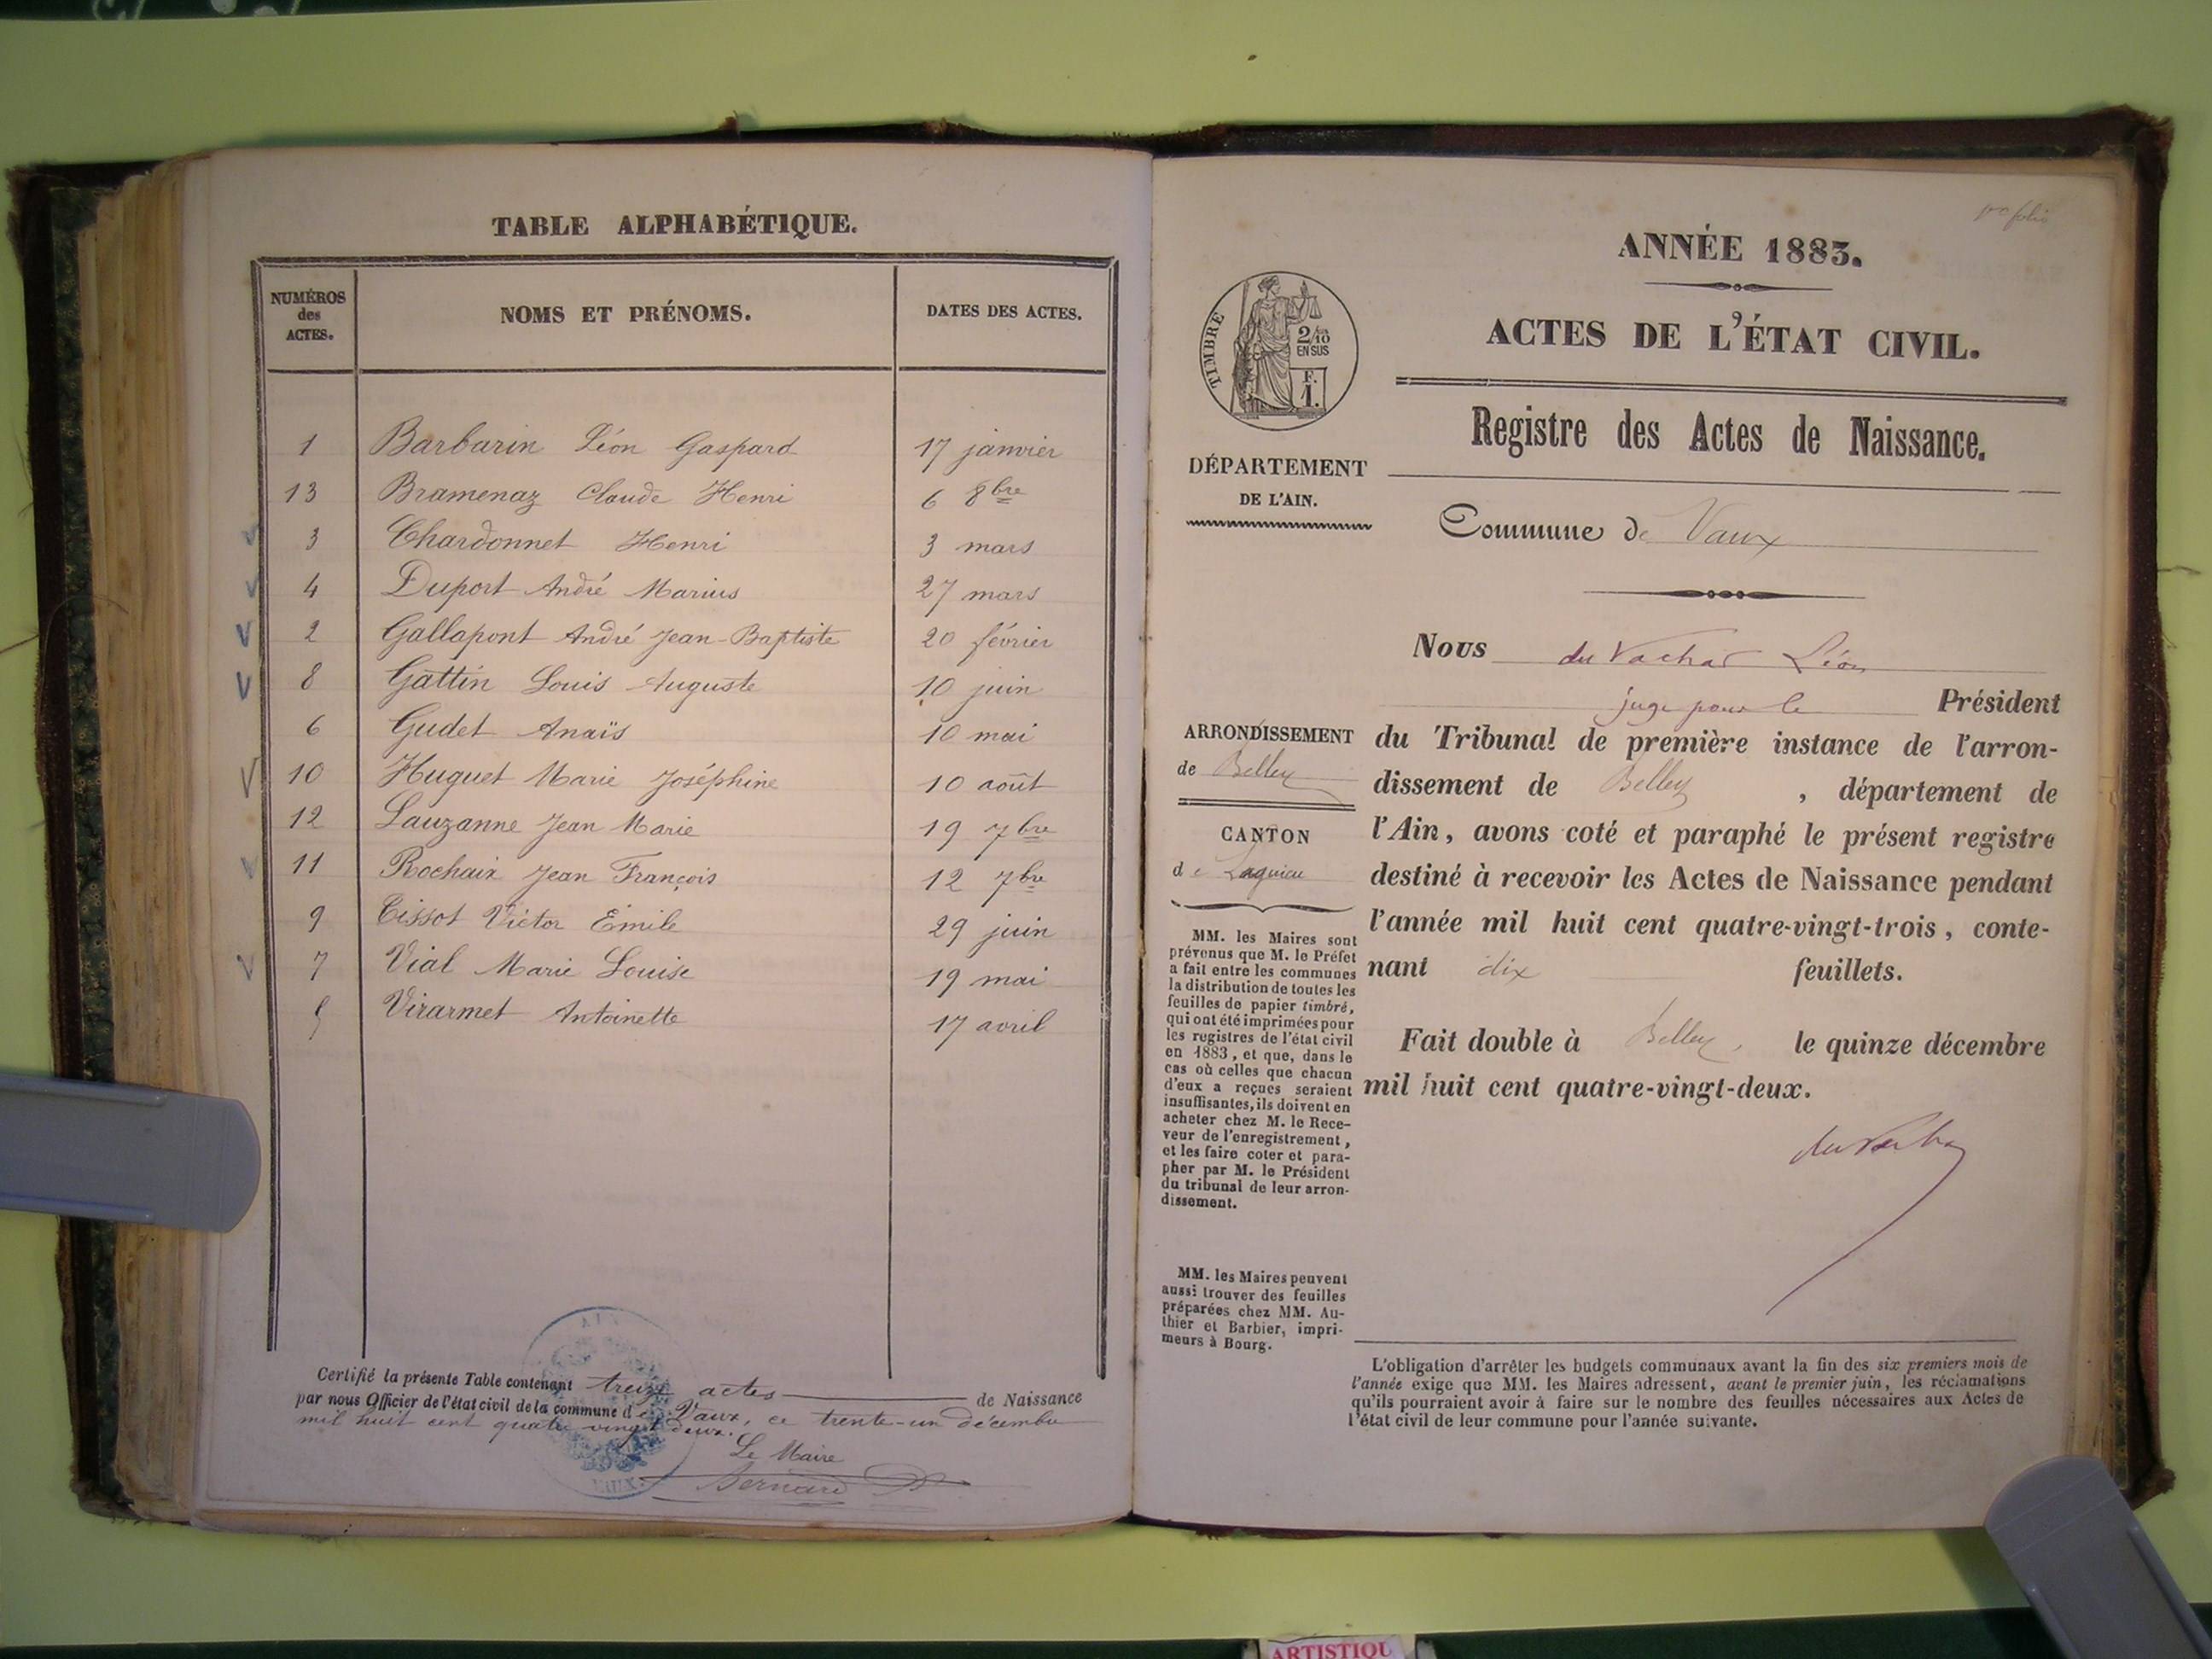 TABLE ALPHABÉTIQUE.
NUMÉROS
des
ACTES.
NOMS ET PRÉNOMS.
DATES DES ACTES.
1 Barbarin Léon Gaspard 17 janvier
13 Bramenaz Claude Henri 6 8bre
3 Chardonnet Henri 3 mars
4 Duport André Marius 27 mars
2 Gallapont André Jean-Baptiste 20 février
8 Gattin Louis Auguste 10 juin
6 Gudet Anaïs 10 mai
10 Huguet Marie Joséphine 10 août
12 Lauzanne Jean Marie 19 7bre
11 Rochaix Jean François 12 7bre
9 Tissot Victor Émile 29 juin
7 Vial Marie Louise 19 mai
5 Virarmet Antoinette 17 avril
Certifié la présente Table contenant treize actes de Naissance
par nous Officier de l'état civil de la commune de Vaux, ce trente-un décembre
mil huit cent quatre vingt deux.
Le Maire
Bernard
AIN
VAUX
1er folio
ANNÉE 1883.
ACTES DE L'ÉTAT CIVIL.
TIMBRE
2/10
EN SUS
F.
1.
Registre des Actes de Naissance.
DÉPARTEMENT
DE L'AIN.
Commune de Vaux
Nous du Vachat Léon
juge pour le Président
du Tribunal de première instance de l'arron-
dissement de Belley, département de
l'Ain, avons coté et paraphé le présent registre
destiné à recevoir les Actes de Naissance pendant
l'année mil huit cent quatre-vingt-trois, conte-
nant dix feuillets.
Fait double à Belley, le quinze décembre
mil huit cent quatre-vingt-deux.
du Vachat
ARRONDISSEMENT
de Belley
CANTON
de Lagnieu
MM. les Maires sont
prévenus que M. le Préfet
a fait entre les communes
la distribution de toutes les
feuilles de papier timbré,
qui ont été imprimées pour
les registres de l'état civil
en 1883, et que, dans le
cas où celles que chacun
d'eux a reçues seraient
insuffisantes, ils doivent en
acheter chez M. le Rece-
veur de l'enregistrement,
et les faire coter et para-
pher par M. le Président
du tribunal de leur arron-
dissement.
MM. les Maires peuvent
aussi trouver des feuilles
préparées chez MM. Au-
thier et Barbier, impri-
meurs à Bourg.
L'obligation d'arrêter les budgets communaux avant la fin des six premiers mois de
l'année exige que MM. les Maires adressent, avant le premier juin, les réclamations
qu'ils pourraient avoir à faire sur le nombre des feuilles nécessaires aux Actes de
l'état civil de leur commune pour l'année suivante.
ARTISTIQU